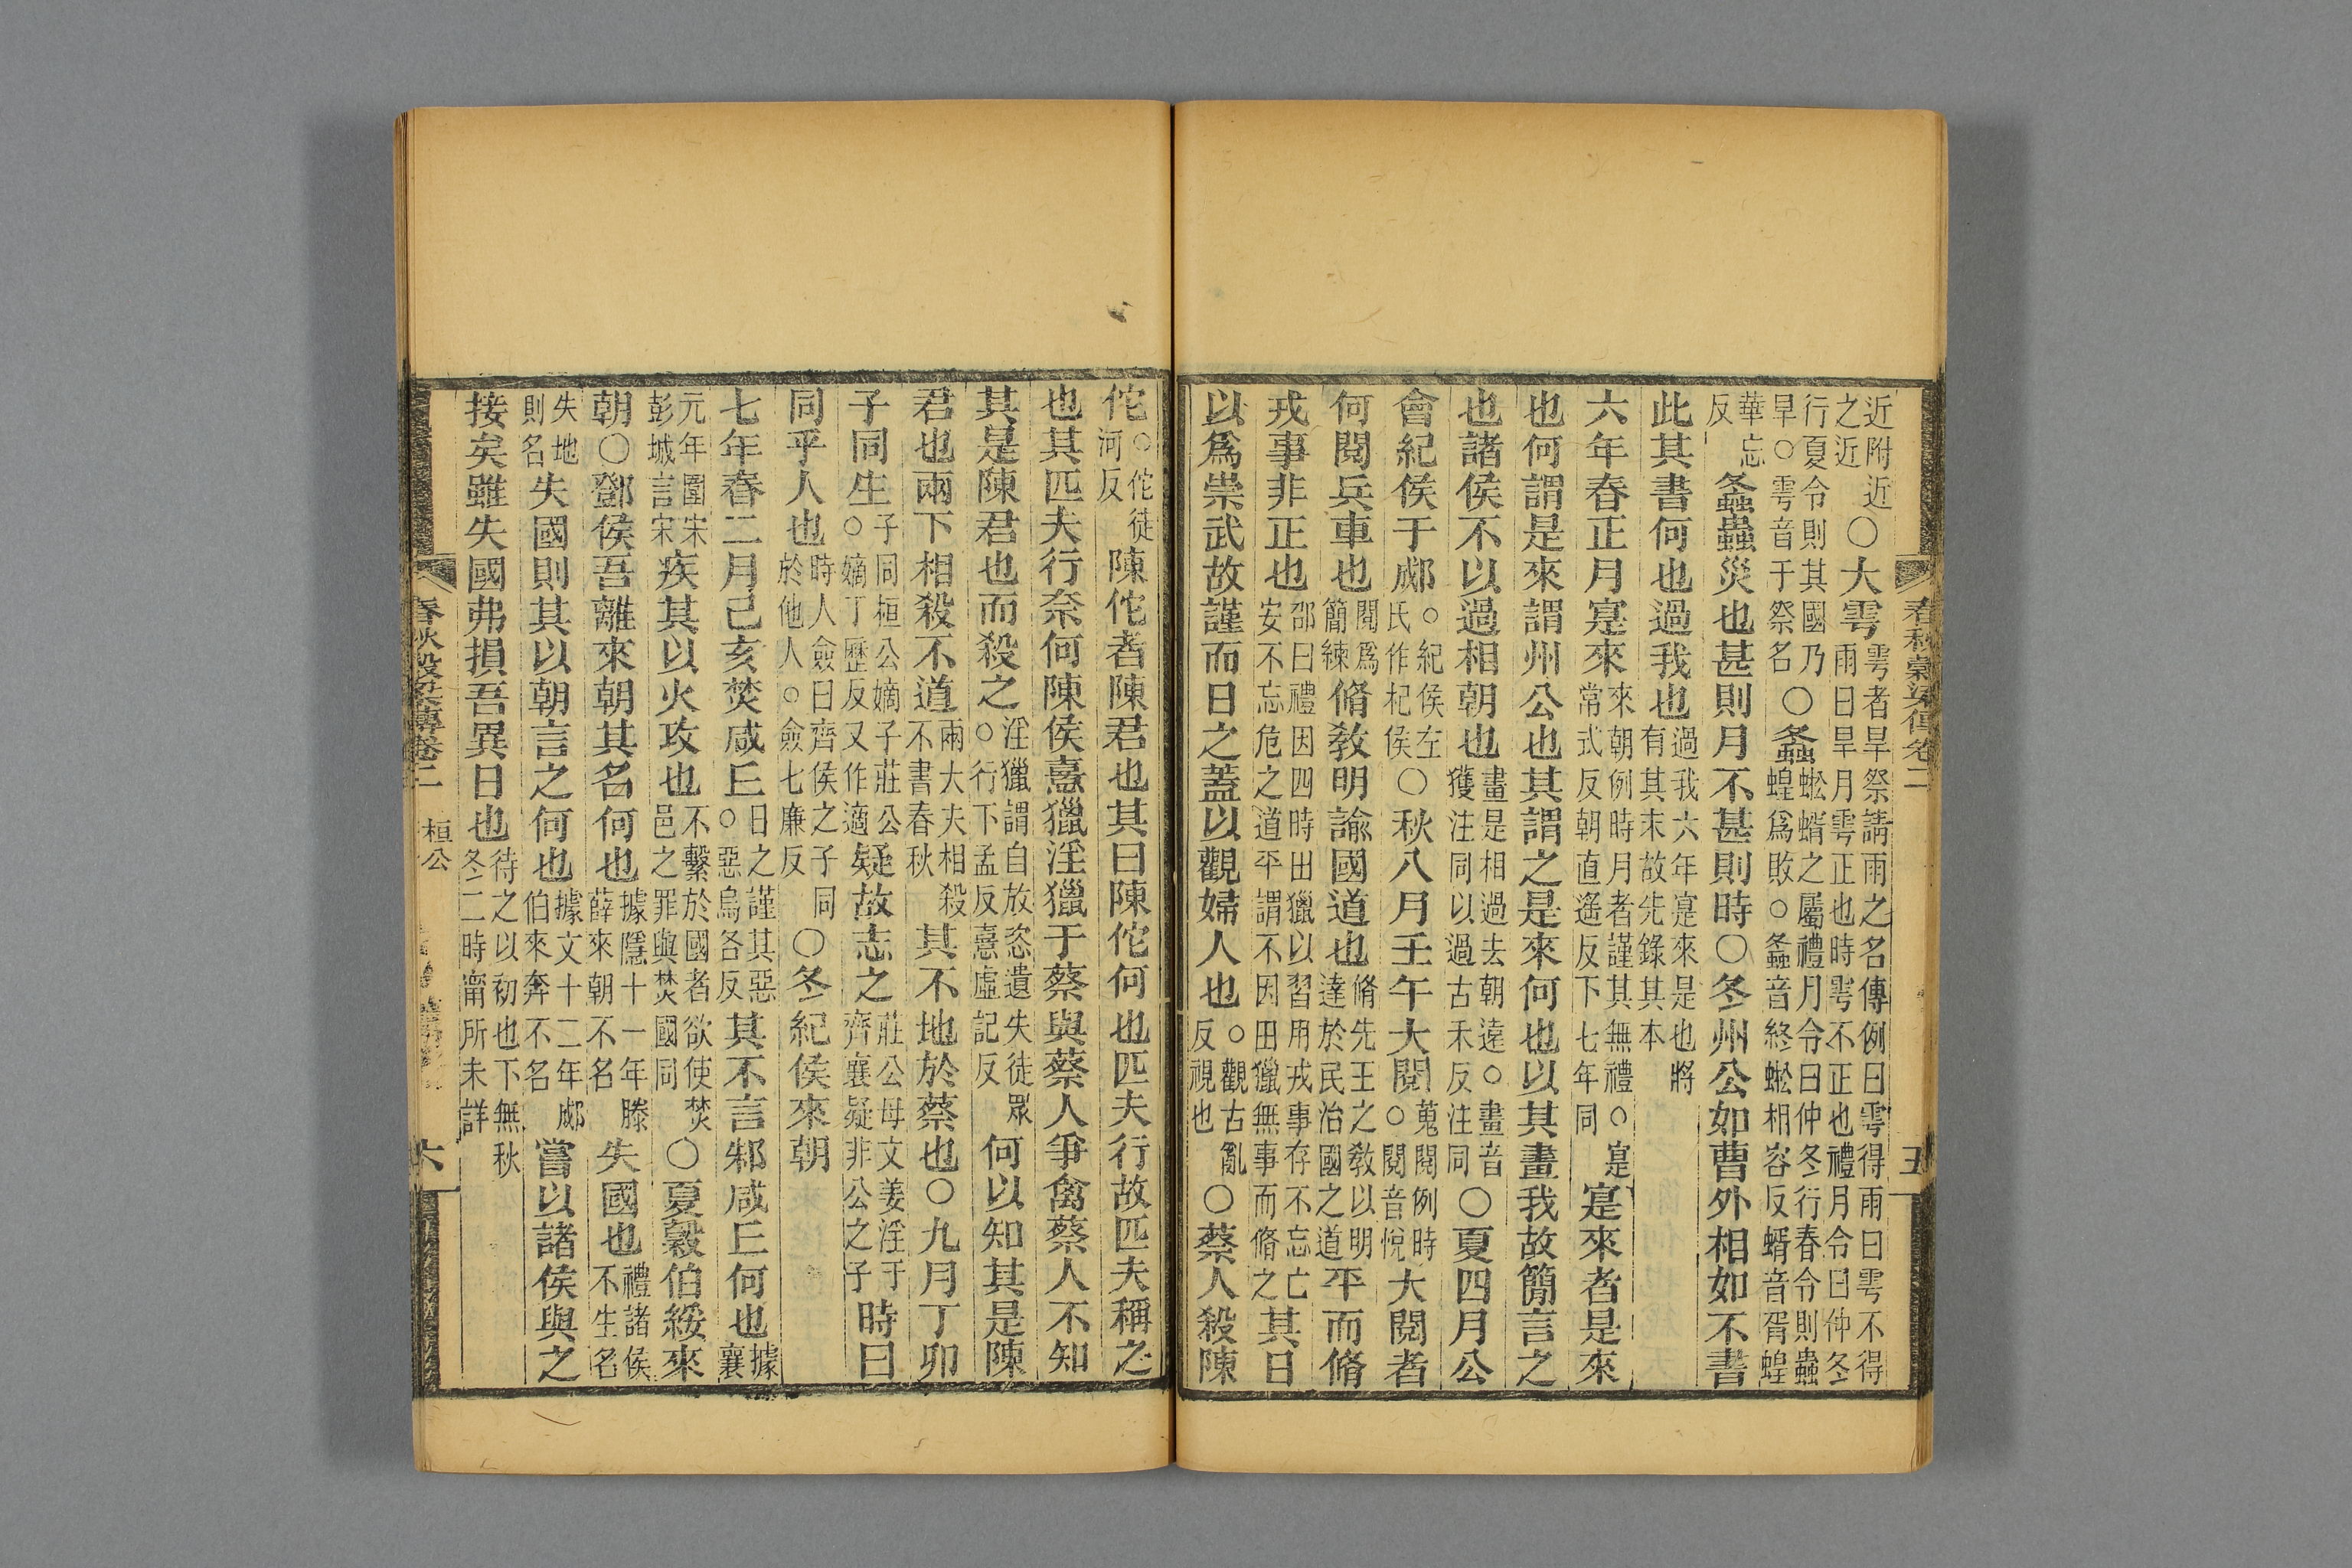 近附近之近○大雩雩者旱祭請雨之名傳例曰雩得雨曰雩不得雨曰旱月雩正也時雩不正也禮月令曰仲冬
行夏令則其國乃旱○雩音于祭名○螽蜙蝑之屬禮月令曰仲冬行春令則蟲蝗爲敗○螽音終蜙相容反蝑音胥蝗
華忘反螽蟲災也甚則月不甚則時○冬州公如曹外相如不書
此其書何也過我也過我六年寔來是也將有其末故先錄其本
六年春正月寔來來朝例時月者謹其無禮○寔常式反朝直遙反下七年同寔來者是來
也何謂是來謂州公也其謂之是來何也以其畫我故簡言之
也諸侯不以過相朝也畫是相過去朝遠○畫音獲注同以過古禾反注同○夏四月公
會紀侯于郕○紀侯左氏作杞侯○秋八月壬午大閱蒐閱例時○閱音悅大閱者
何閱兵車也閱爲簡練脩敎明諭國道也脩先王之敎以明達於民治國之道平而脩
戎事非正也邵曰禮因四時田獵以習用戎事存不忘亡安不忘危之道平謂不因田獵無事而脩之其日
以爲崇武故謹而日之蓋以觀婦人也○觀古亂反視也○蔡人殺陳
春秋穀梁傳卷二
五
佗○佗徒河反陳佗者陳君也其曰陳佗何也匹夫行故匹夫稱之
也其匹夫行奈何陳侯憙獵淫獵于蔡與蔡人爭禽蔡人不知
其是陳君也而殺之淫獵謂自放恣遺失徒眾○行下孟反憙虛記反何以知其是陳
君也兩下相殺不道兩大夫相殺不書春秋其不地於蔡也○九月丁卯
子同生子同桓公嫡子莊公○嫡丁歷反又作適疑故志之莊公母文姜淫于齊襄疑非公之子時曰
同乎人也時人僉曰齊侯之子同於他人○僉七廉反○冬紀侯來朝
七年春二月己亥焚咸丘日之謹其惡○惡烏各反其不言邾咸丘何也據襄
元年圍宋彭城言宋疾其以火攻也不繫於國者欲使焚邑之罪與焚國同○夏穀伯綏來
朝○鄧侯吾離來朝其名何也據隱十一年滕薛來朝不名失國也禮諸侯不生名
失地則名失國則其以朝言之何也據文十二年郕伯來奔不名嘗以諸侯與之
接矣雖失國弗損吾異日也待之以初也下無秋冬二時甯所未詳
春秋穀梁傳卷二
桓公
六